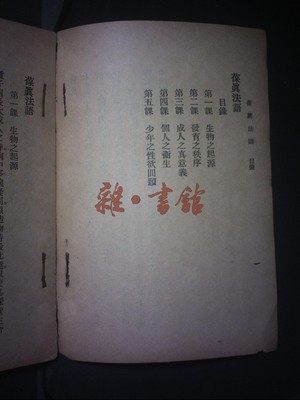 葆眞法語 目錄
一
葆眞法語
目錄
第一課 生物之起源
第二課 發育之秩序
第三課 成人之眞意義
第四課 個人之衞生
第五課 少年之性欲問題
雜·書館
葆眞法語
第一課 生物之起源